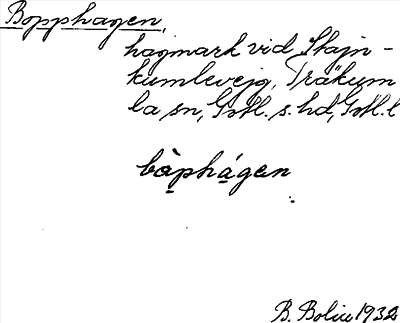 Bopphagen,
hagmark vid Stajn-
kumlevejg, Träkum
la sn, Gotl. s. hd, Gotl. l
bọ̀phạ́gen
B. Bolin 1932